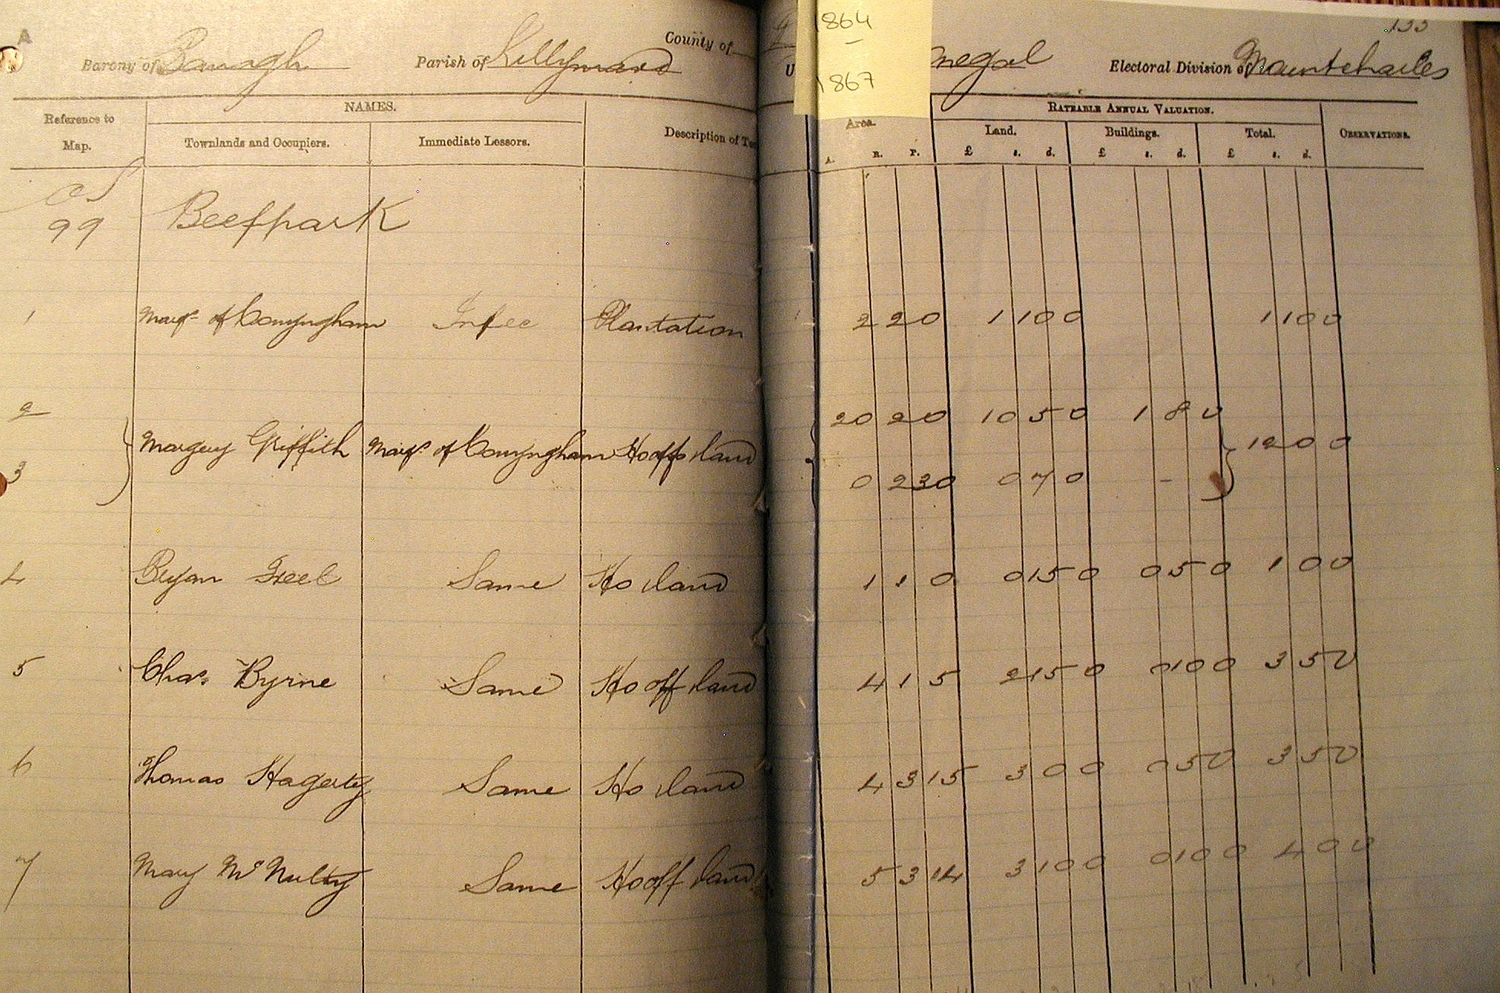 A
1864
—
1867
Barony of Banagh Parish of Killymard County of negal Electoral Division of Mountcharles
Reference to Map. NAMES. Description of Te Area. RATEABLE ANNUAL VALUATION. OBSERVATIONS.
Townlands and Occupiers. Immediate Lessors. Land. Buildings. Total.
A. R. P. £ s. d. £ s. d. £ s. d.
OS
99 Beefpark
1 Marqs of Conyngham In fee Plantation 2 2 0 1 10 0 1 10 0
2 20 2 0 10 5 0 1 8 0
Margery Griffith Marqs of Conyngham Ho offs land 12 0 0
3 0 2 30 0 7 0 -
4 Bryan Freel Same Ho land 1 1 0 0 15 0 0 5 0 1 0 0
5 Chas. Byrne Same Ho off land 4 1 5 2 15 0 0 10 0 3 5 0
6 Thomas Hagerty Same Ho land 4 3 15 3 0 0 0 5 0 3 5 0
7 Mary McNulty Same Ho off land 5 3 14 3 10 0 0 10 0 4 0 0